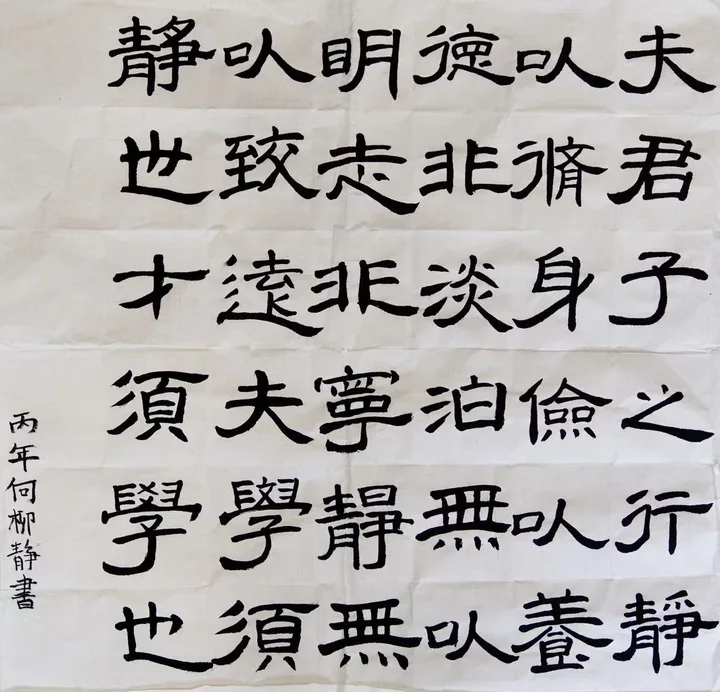 夫君子之行靜
以脩身儉以養
德非淡泊無以
明志非寧靜無
以致遠夫學須
靜也才須學也
丙年何柳静書